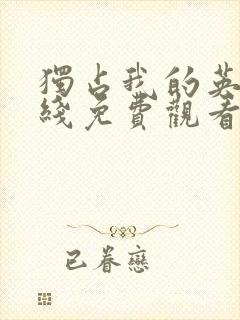 獨占我的英
綫免費觀看
已眷戀